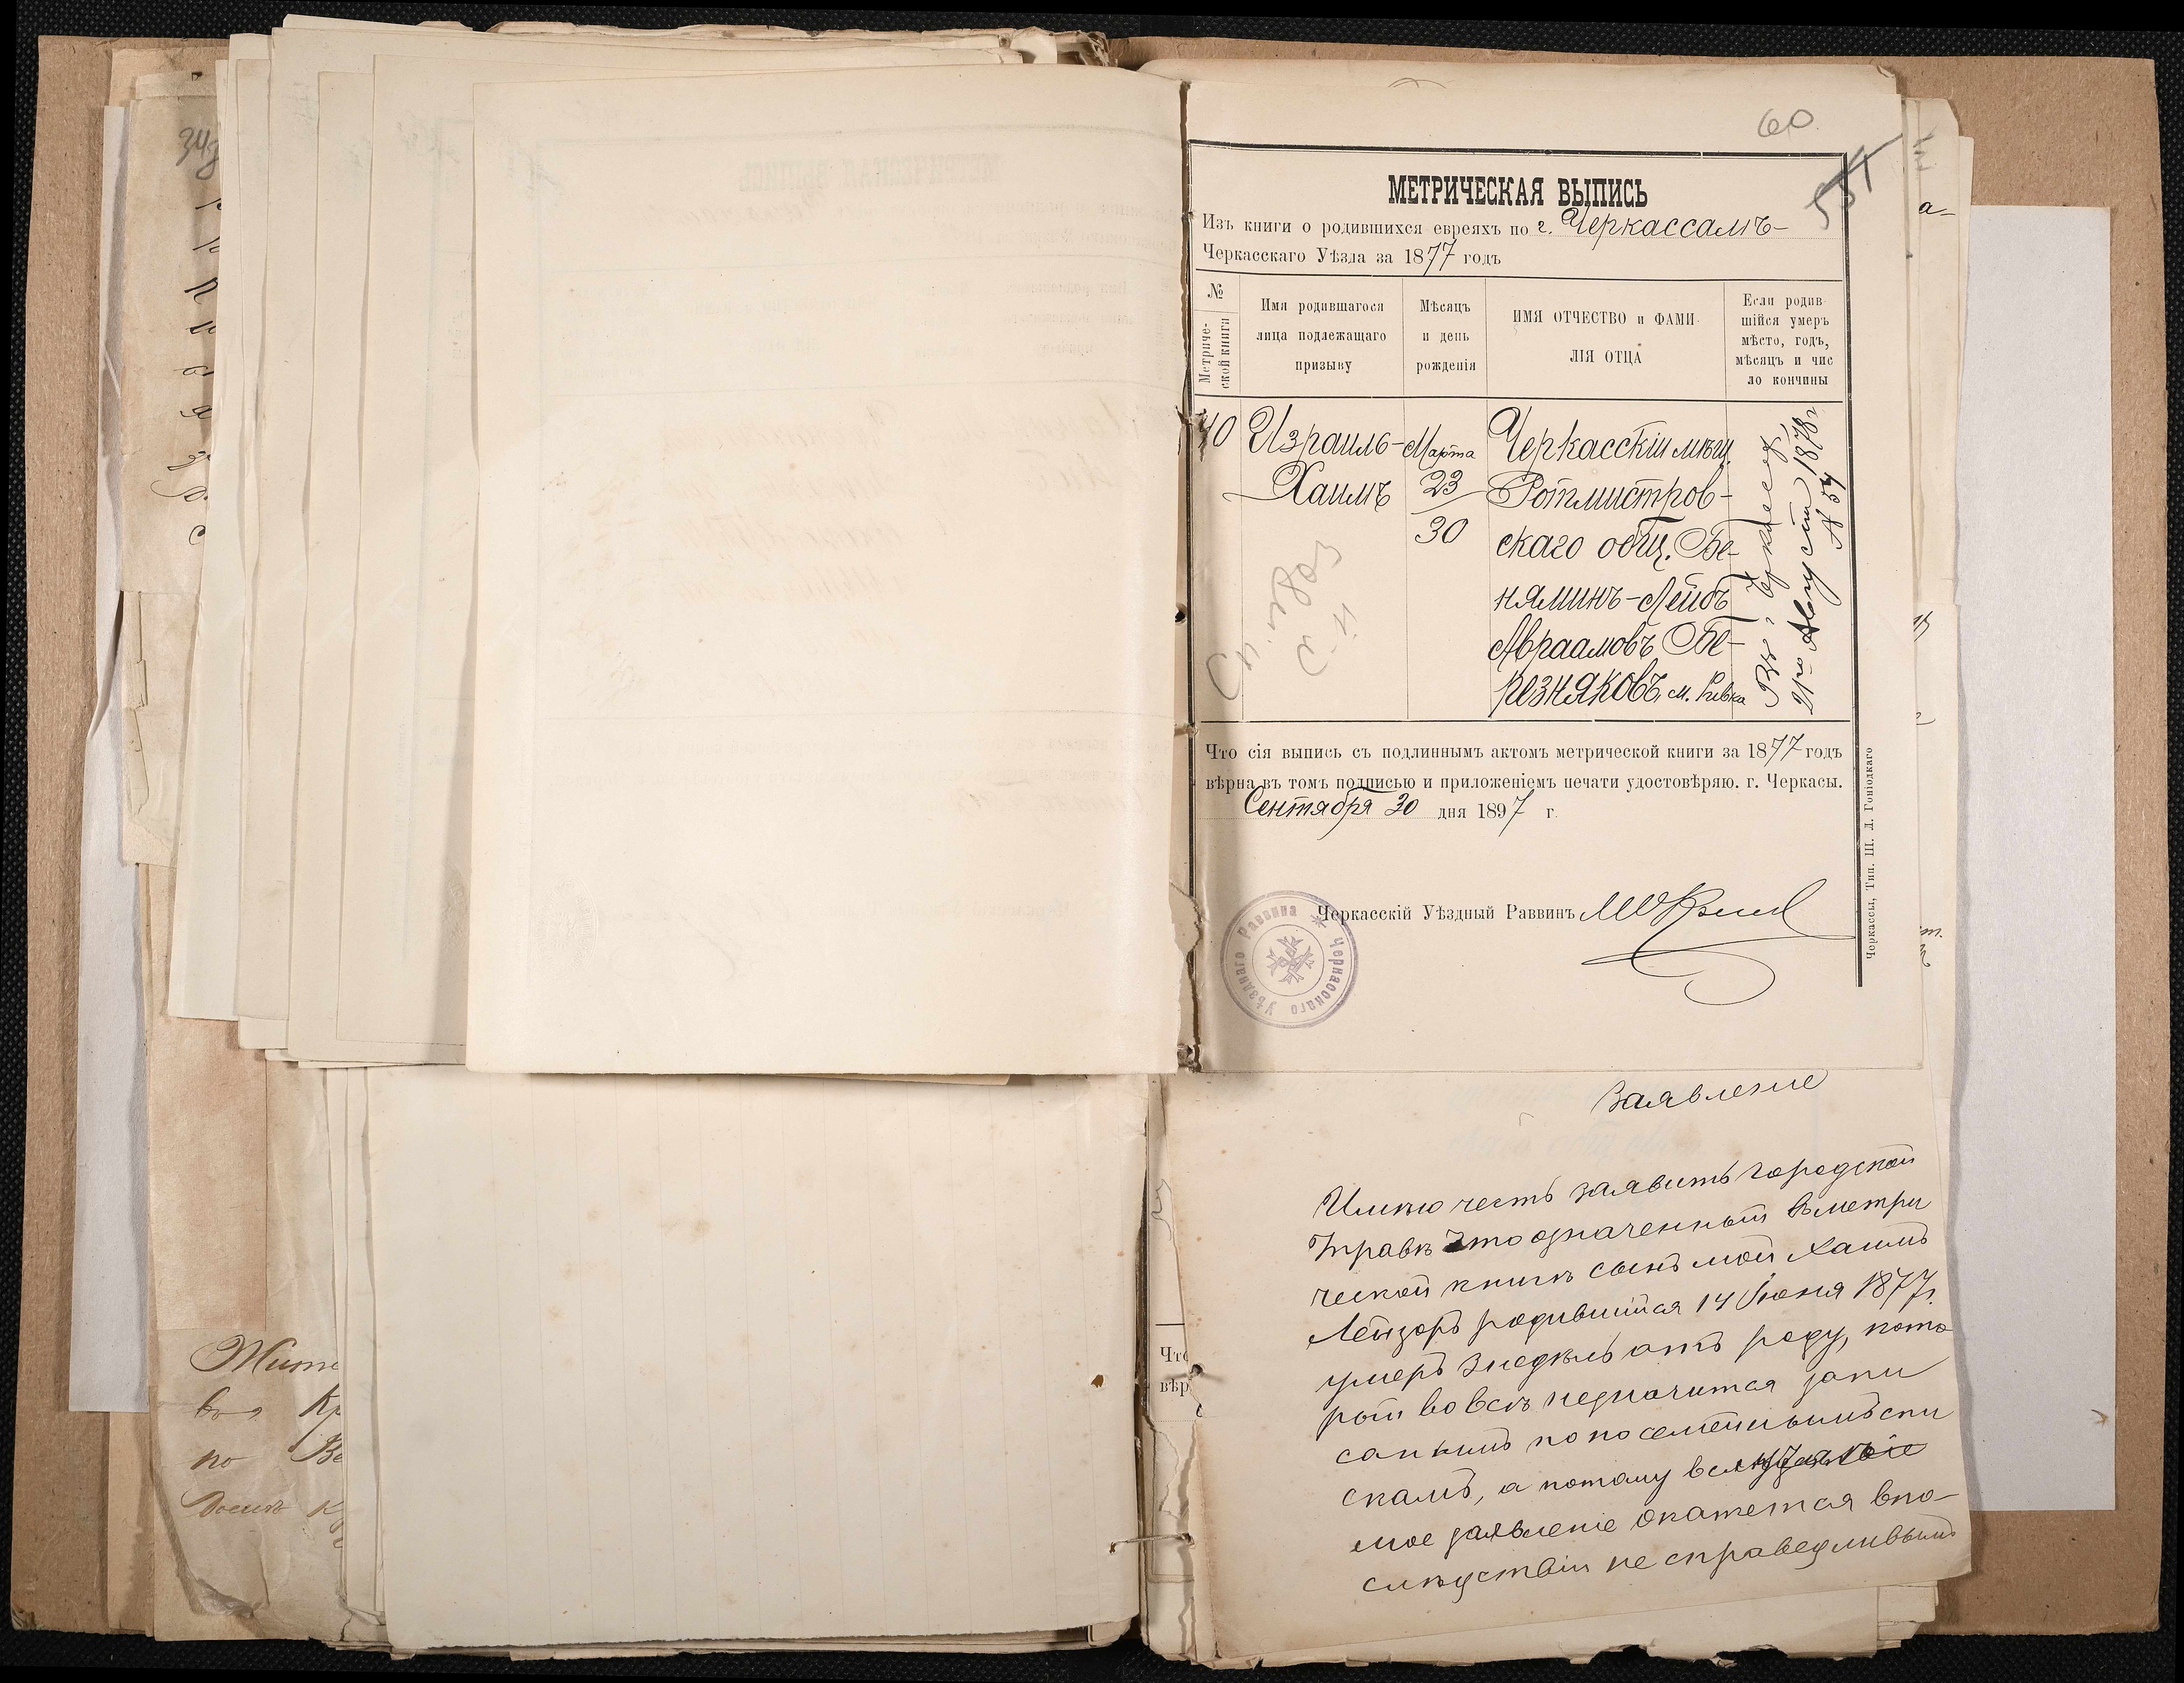 60
МЕТРИЧЕСКАЯ ВЫПИСЬ
Изъ книги о родившихся евреяхъ по г. Черкассамъ
Черкасскаго Уѣзда за 1877 годъ
№ Метриче-ской книги
Имя родившагося лица подлежащаго призыву
Мѣсяцъ и день рожденія
ИМЯ ОТЧЕСТВО и ФАМИЛІЯ ОТЦА
Если родив-шійся умеръ мѣсто, годъ, мѣсяцъ и чис ло кончины
Израиль-
Хаимъ
Марта
23
30
Черкасскій мѣщ.
Ротмистров-
скаго общ. Бе-
няминъ-Лейбъ
Авраамовъ Бе-
резняковъ, м. Ривка
Августа 1878 г
№ 54
Что сія выпись съ подлиннымъ актомъ метрической книги за 1877 годъ
вѣрна въ томъ подписью и приложеніемъ печати удостовѣряю. г. Черкасы.
Сентября 30 дня 1897 г.
Черкасскій Уѣздный Раввинъ
Черкасскаго Уѣзднаго Раввина
Черкассы, Тип. Ш. Л. Гоніодкаго
Заявленіе
Имѣю честь заявить городской
Управѣ что означенный въ метри
ческой книгѣ сынъ мой Хаимъ
Лейзоръ родившійся 14 Іюня 1877 г.
умеръ 3 недѣль отъ роду, кото
рый вовсѣ не значится запи
саннымъ по посемейнымъ спи
скамъ, а потому
мое заявленіе окажется впо-
слѣдствіи не справедливымъ
Что
вѣр